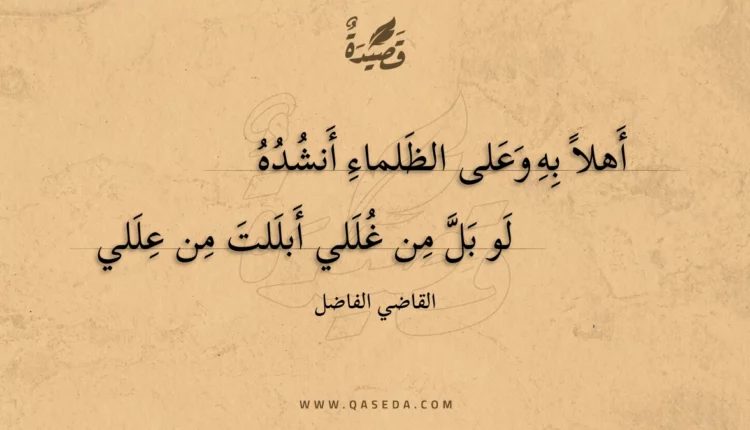 قَصِيدَةٌ
أَهلاً بِهِ وَعَلى الظَلماءِ أَنشُدُهُ
لَو بَلَّ مِن غُلَلي أَبلَلتَ مِن عِلَلي
القاضي الفاضل
WWW.QASEDA.COM